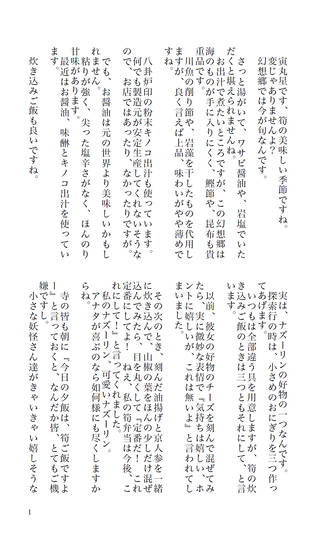 寅丸星です、筍の美味しい季節ですね。
変じゃありませんよ?
幻想郷では今が旬なんです。
さっと湯がいて、ワサビ醤油や、岩塩でいた
だくと堪えられませんね。
お出汁で煮たいところですが、この幻想郷は
海のものが手に入りにくく、鰹節や、昆布も貴
重品です。
川魚の削り節や、岩藻を干したものを代用し
ますが、良く言えば上品、味わいがやや薄めで
すね。
八卦が印の粉末キノコ出汁も使っています。
何でも製造元が安定生産してくれないそうな
ので、お店ではあったり、なかったりですが。
でも、お醤油は元の世界より美味しいかもし
れません。
粘りが強く、尖った塩辛さがなく、ほんのり
甘味があります。
最近はお醤油、味醂とキノコ出汁を使ってい
ます。
炊き込みご飯も良いですね。
実は、ナズーリンの好物の一つなんです。
探索行の時は、小さめのおにぎりを三つ作っ
てあげます。
いつもは全部違う具を用意しますが、筍の炊
き込みご飯のときは三つともそれにして、と言
います。
以前、彼女の好物のチーズを刻んで混ぜてみ
たら、実に微妙な表情で『気持ちは嬉しい、ホ
ントに嬉しいが、これは無いよ』と言われてし
まいました。
その次のとき、刻んだ油揚げと京人参を一緒
に炊き込んで、山椒の葉をほんの少しだけ混ぜ
込んでみたら、目を丸くして『定番だ!これ
定番にしてよ!ねえ、私の筍弁当は今後、こ
れにして!』と言ってくれました。
私のナズーリン、可愛いナズーリン。
アナタが喜ぶのなら如何様にも尽くしますか
らね。
寺の皆も朝に『今日の夕飯は、筍ご飯ですよ
ー』と言っておくと、なんだか皆、とてもご機
嫌ですし。
小さな妖怪さん達がきゃいきゃい嬉しそうな
1